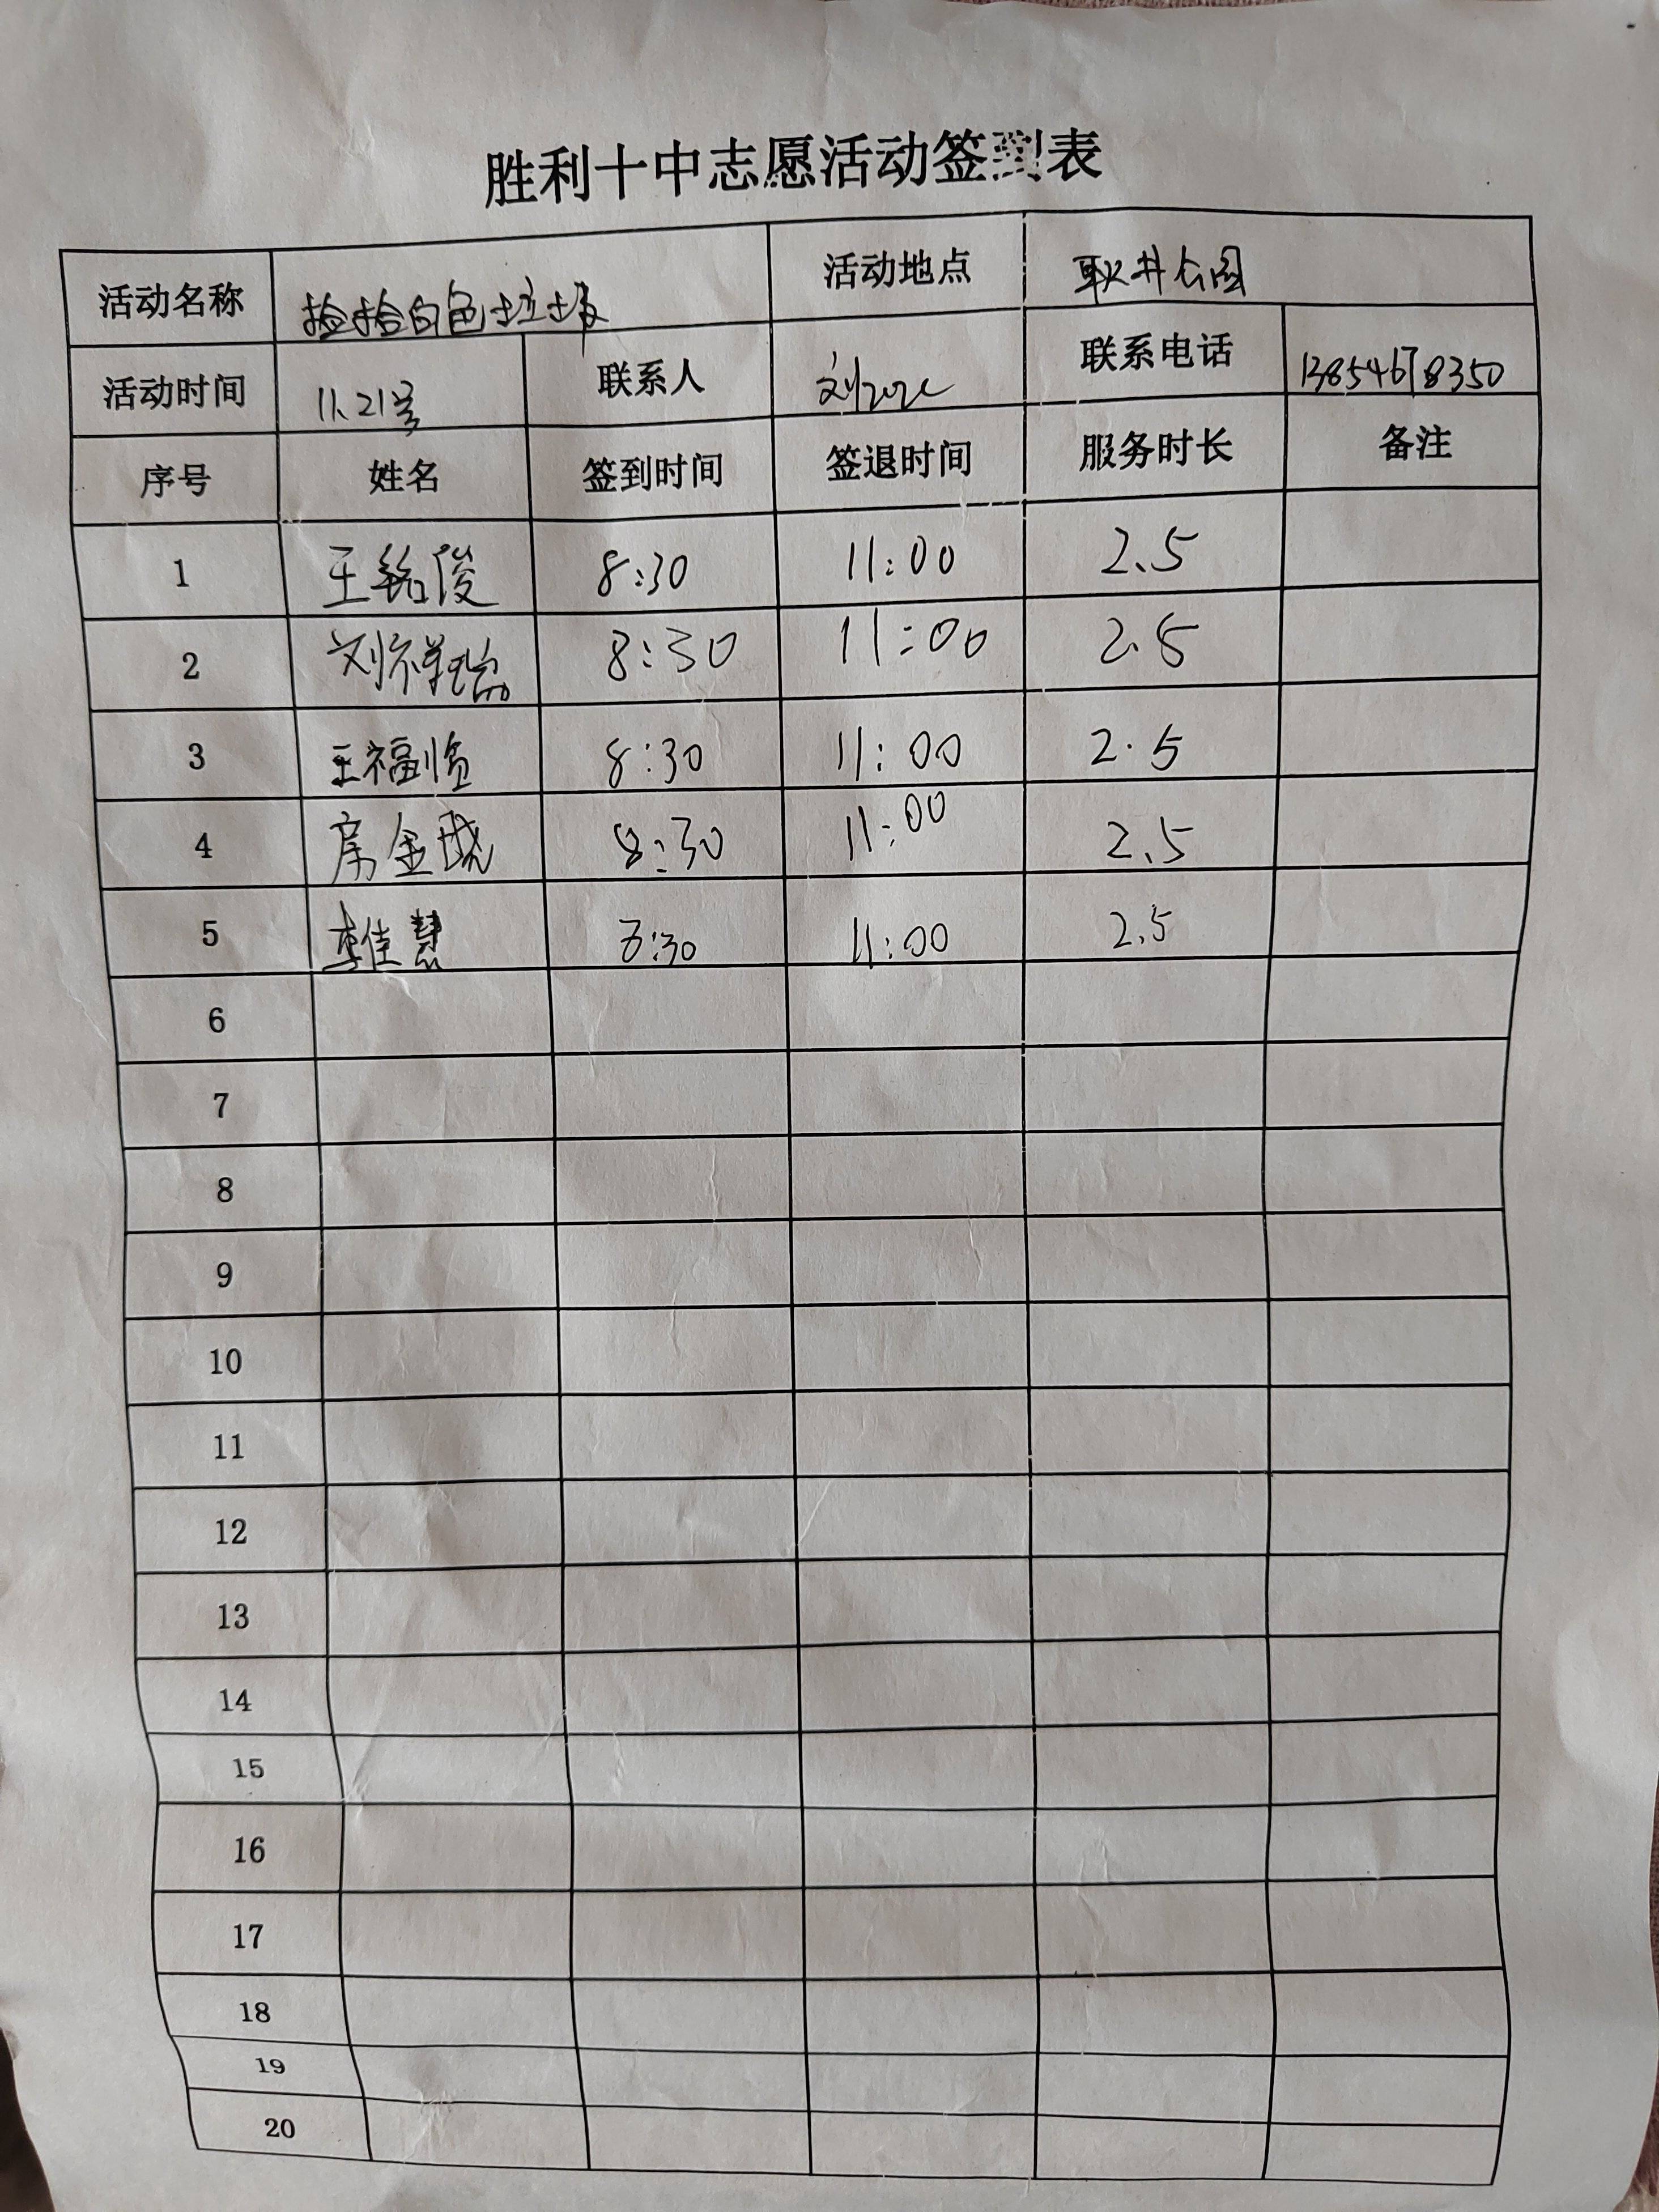 胜利十中志愿活动签到表
活动名称 捡拾白色垃圾 活动地点 耿井公园
活动时间 11.21号 联系人 刘 联系电话 13854678350
序号 姓名 签到时间 签退时间 服务时长 备注
1 王铭俊 8:30 11:00 2.5
2 刘祥瑞 8:30 11:00 2.5
3 王福 8:30 11:00 2.5
4 席金晓 8:30 11:00 2.5
5 李佳慧 8:30 11:00 2.5
6
7
8
9
10
11
12
13
14
15
16
17
18
19
20